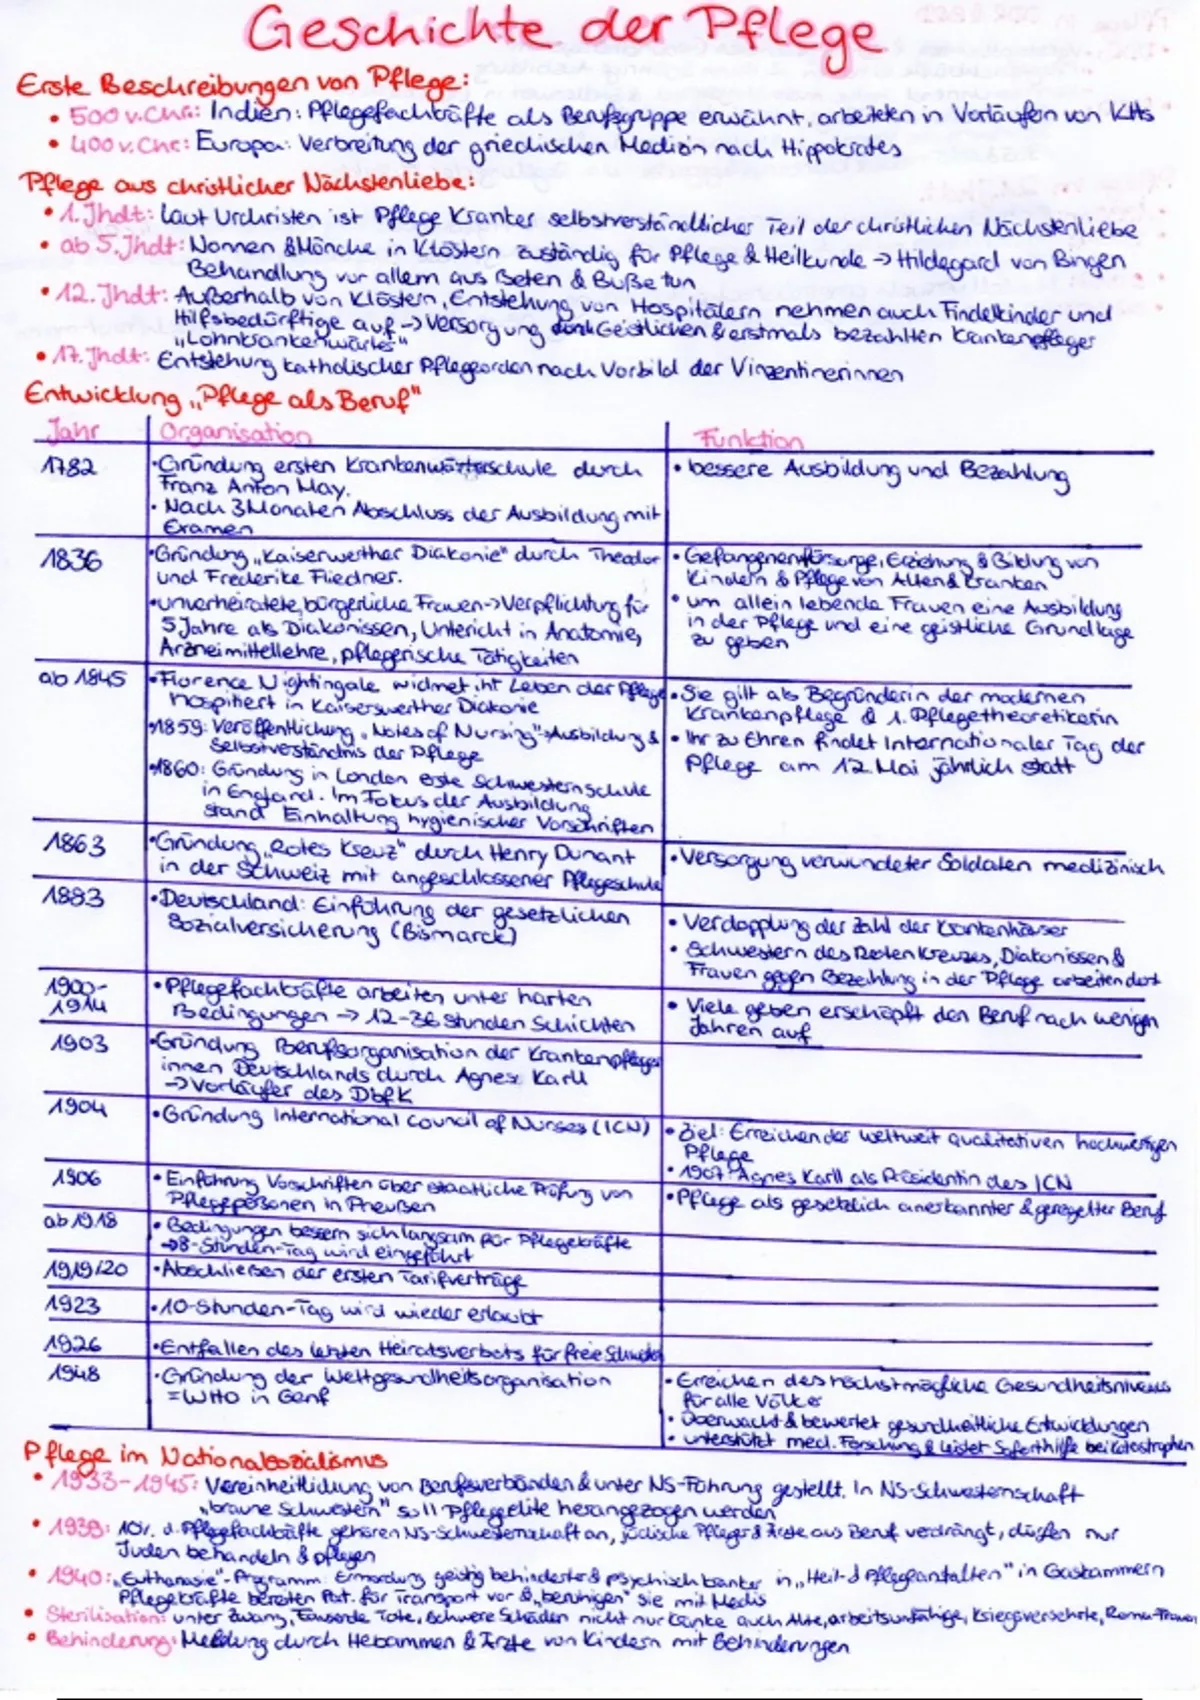 Geschichte der Pflege
Erste Beschreibungen von Pflege:
• 500 v. Chr.: Indien: Pflegefachkräfte als Berufsgruppe erwähnt, arbeiteten in Vorläufen von KHs
• 400 v. Chr: Europa: Verbreitung der griechischen Medizin nach Hippokrates
Pflege aus christlicher Nächstenliebe:
• 1. Jhdt: Laut Urchristen ist Pflege Kranker selbstverständlicher Teil der christlichen Nächstenliebe
• ab 5. Jhdt: Nonnen & Mönche in Klöstern zuständig für Pflege & Heilkunde → Hildegard von Bingen
Behandlung vor allem aus Beten & Buße tun
• 12. Jhdt: Außerhalb von Klöstern, Entstehung von Hospitälern nehmen auch Findelkinder und
Hilfsbedürftige auf → Versorgung durch Geistlichen & erstmals bezahlten Krankenpfleger
„Lohnkrankenwärter"
• 17. Jhdt: Entstehung katholischer Pflegeorden nach Vorbild der Vinzentinerinnen
Entwicklung „Pflege als Beruf"
Jahr Organisation Funktion
1782 • Gründung ersten Krankenwärterschule durch • bessere Ausbildung und Bezahlung
Franz Anton May.
• Nach 3 Monaten Abschluss der Ausbildung mit
Examen
1836 • Gründung „Kaiserwerther Diakonie" durch Theodor • Gefangenenfürsorge, Erziehung & Bildung von
und Frederike Fliedner. Kindern & Pflege von Alten & Kranken
• unverheiratete, bürgerliche Frauen → Verpflichtung für • um allein lebende Frauen eine Ausbildung
5 Jahre als Diakonissen, Untericht in Anatomie, in der Pflege und eine geistliche Grundlage
Arzneimittellehre, pflegerische Tätigkeiten zu geben
ab 1845 • Florence Nightingale widmet ihr Leben der Pflege • Sie gilt als Begründerin der modernen
hospitiert in Kaiserswerther Diakonie Krankenpflege & 1. Pflegetheoretikerin
• 1859: Veröffentlichung „Notes of Nursing" → Ausbildung & • Ihr zu Ehren findet Internationaler Tag der
Selbstverständnis der Pflege Pflege am 12 Mai jährlich statt
• 1860: Gründung in London erste Schwesternschule
in England. Im Fokus der Ausbildung
stand Einhaltung hygienischer Vorschriften
1863 • Gründung „Rotes Kreuz" durch Henry Dunant • Versorgung verwundeter Soldaten medizinisch
in der Schweiz mit angeschlossener Pflegeschule
1883 • Deutschland: Einführung der gesetzlichen • Verdopplung der Zahl der Krankenhäuser
Sozialversicherung (Bismarck) • Schwestern des Roten Kreuzes, Diakonissen &
Frauen gegen Bezahlung in der Pflege arbeiten dort
1900- • Pflegefachkräfte arbeiten unter harten • Viele geben erschöpft den Beruf nach wenigen
1914 Bedingungen → 12-36 Stunden Schichten Jahren auf
1903 • Gründung Berufsorganisation der Krankenpfleger
innen Deutschlands durch Agnes Karll
→ Vorläufer des DbfK
1904 • Gründung International Council of Nurses (ICN) • Ziel: Erreichen der weltweit qualitativen hochwertigen
Pflege
• 1907: Agnes Karll als Präsidentin des ICN
1906 • Einführung Vorschriften über staatliche Prüfung von • Pflege als gesetzlich anerkannter & geregelter Beruf
Pflegepersonen in Preußen
ab 1918 • Bedingungen bessern sich langsam für Pflegekräfte
→ 8-Stunden-Tag wird eingeführt
1919/20 • Abschließen der ersten Tarifverträge
1923 • 10-Stunden-Tag wird wieder erlaubt
1926 • Entfallen des letzten Heiratsverbots für freie
1948 • Gründung der Weltgesundheitsorganisation • Erreichen des höchstmögliche Gesundheitsniveaus
= WHO in Genf für alle Völker
• Überwacht & bewertet gesundheitliche Entwicklungen
• unterstützt med. Forschung & leistet Soforthilfe bei Katastrophen
Pflege im Nationalsozialismus
• 1933-1945: Vereinheitlichung von Berufsverbänden & unter NS-Führung gestellt. In NS-Schwesternschaft
„braune Schwestern" soll Pflegeelite herangezogen werden
• 1939: 10% d. Pflegefachkräfte gehören NS-Schwesternschaft an, jüdische Pfleger & Ärzte aus Beruf verdrängt, dürfen nur
Juden behandeln & pflegen
• 1940: „Euthanasie"-Programm: Ermordung geistig behinderter & psychisch kranker in „Heil- & Pflegeanstalten" in Gaskammern
Pflegekräfte bereiten Pat. für Transport vor & „beruhigen" sie mit Medis
• Sterilisation: unter Zwang, Tausende Tote, schwere Schäden nicht nur Kranke auch Alte, arbeitsunfähige, Kriegsversehrte, Roma-Frauen
• Behinderung: Meldung durch Hebammen & Ärzte von Kindern mit Behinderungen